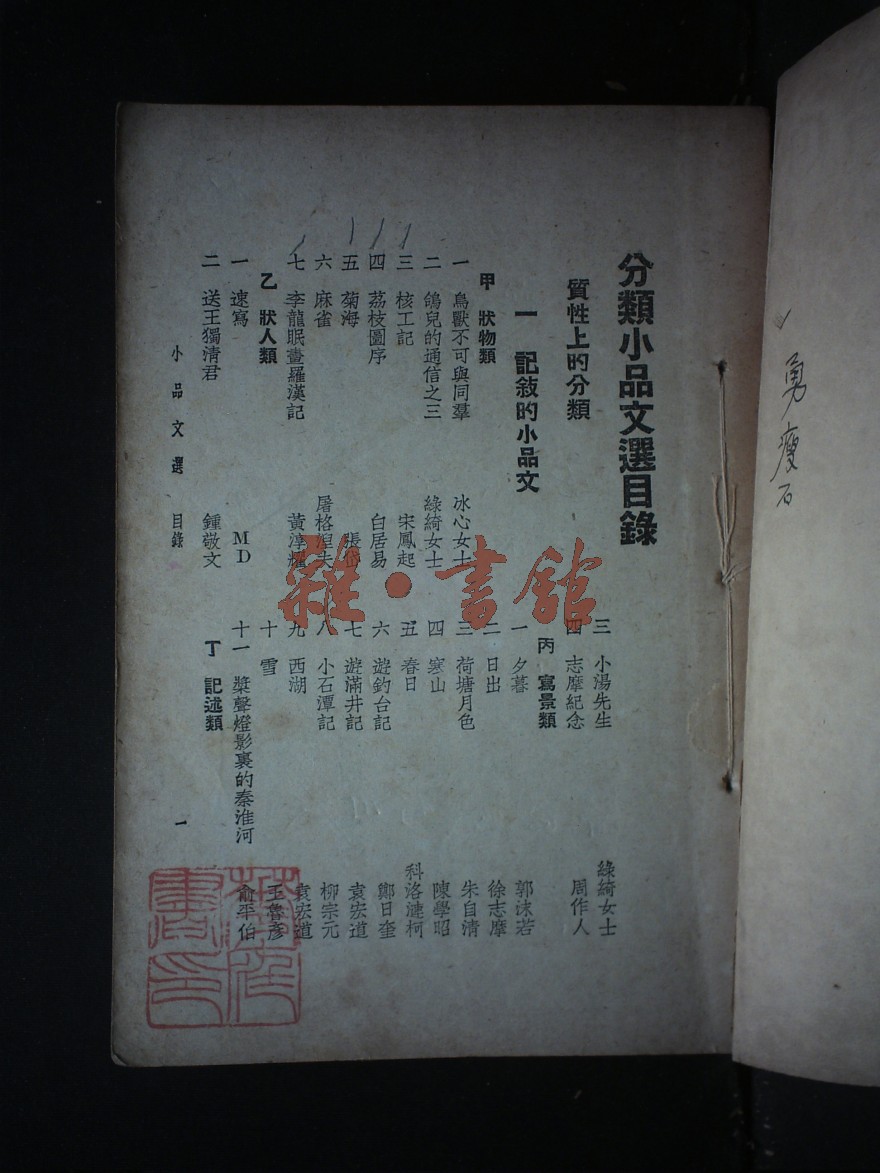 分類小品文選目錄
質性上的分類
一 記敍的小品文
甲 狀物類
一 鳥獸不可與同羣 冰心女士
二 鴿兒的通信之三 綠綺女士
三 核工記 宋鳳起
四 荔枝圖序 白居易
五 菊海 張岱
六 麻雀 屠格涅夫
七 李龍眠畫羅漢記 黃淳耀
乙 狀人類
一 速寫 MD
二 送王獨清君 鍾敬文
三 小湯先生 綠綺女士
四 志摩紀念 周作人
丙 寫景類
一 夕暮 郭沫若
二 日出 徐志摩
三 荷塘月色 朱自清
四 寒山 陳學昭
五 春日 科洛漣柯
六 遊釣台記 鄭日奎
七 遊滿井記 袁宏道
八 小石潭記 柳宗元
九 西湖 袁宏道
十 雪 王魯彥
十一 槳聲燈影裏的秦淮河 俞平伯
丁 記述類
小品文選 目錄
一
雜·書館
勇瘦石